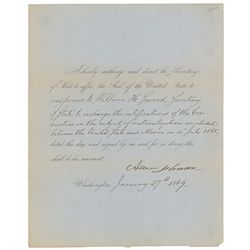 I hereby authorize and direct the Secretary
of State to affix the Seal of the United States to
my power to William H. Seward, Secretary
of State, to exchange the ratifications of the Con-
vention on the subject of naturalization concluded
between the United States and Mexico on 10th July 1868,
dated this day and signed by me and for so doing this
shall be his warrant.
Andrew Johnson
Washington, January 27th 1869.